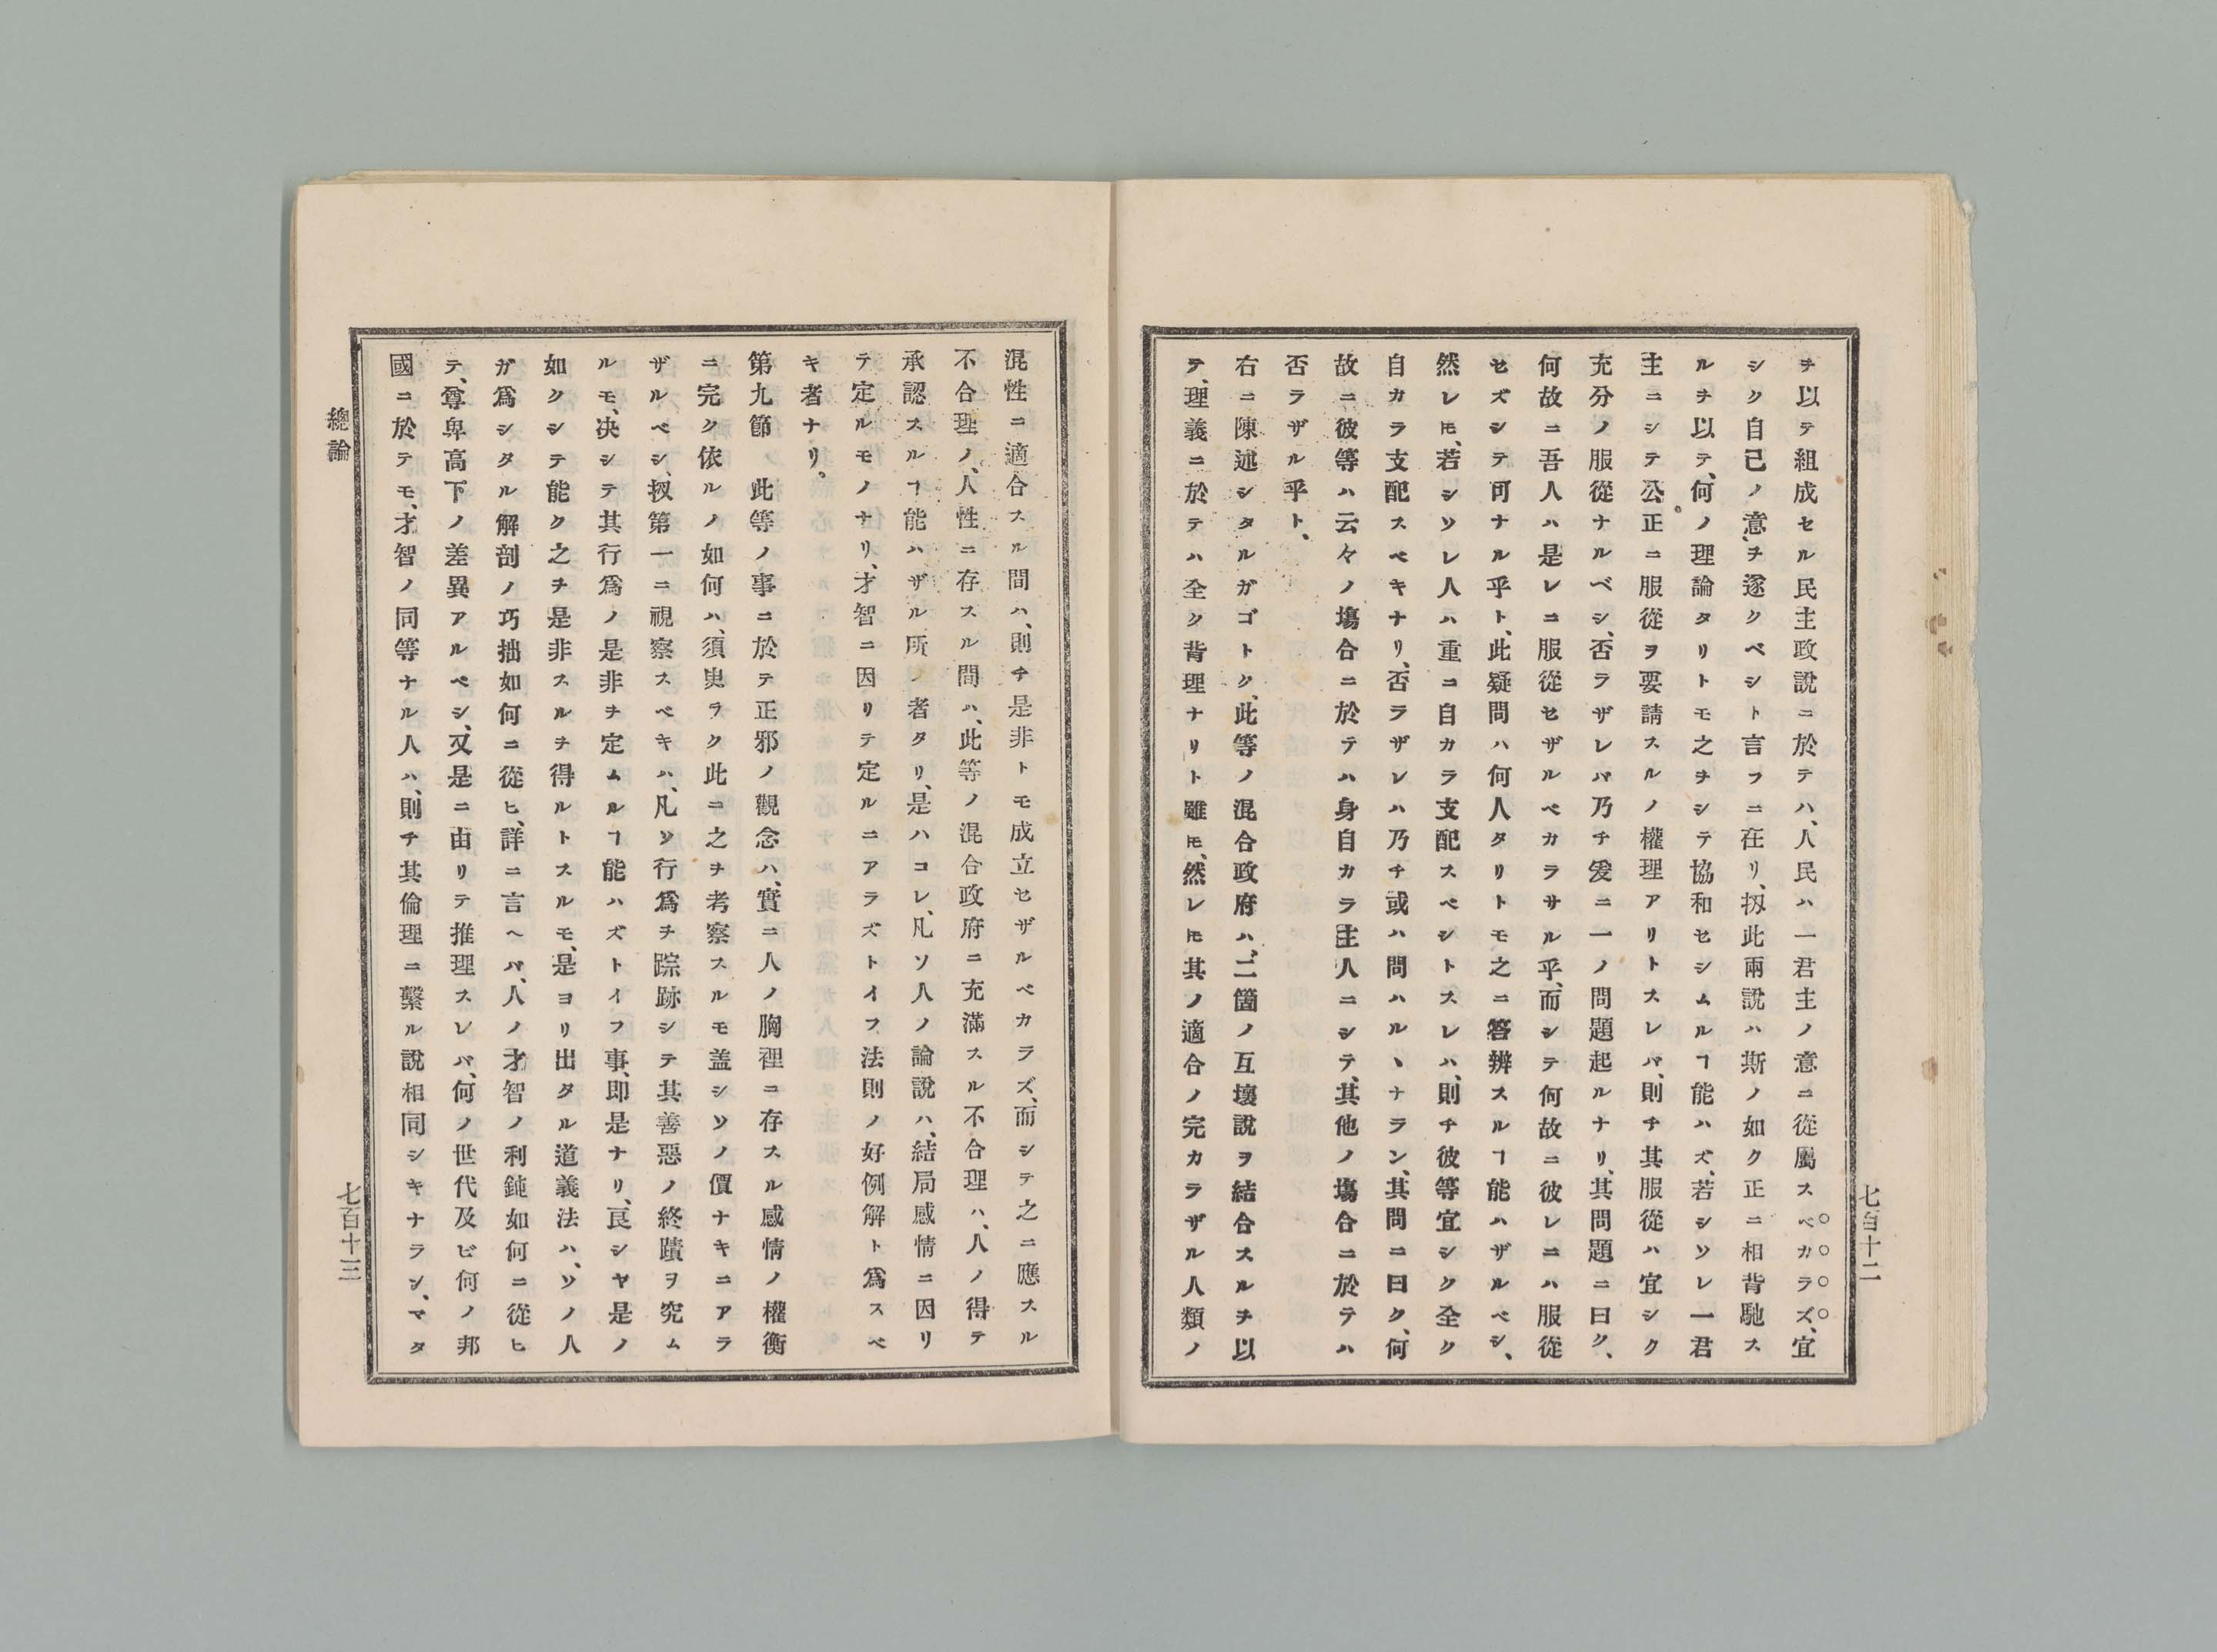 ヲ以テ組成セル民主政説ニ於テハ、人民ハ一君主ノ意ニ從屬スベカラズ、宜
シク自己ノ意ヲ遂クベシト言フニ在リ、扨此兩説ハ斯ノ如ク正ニ相背馳ス
ルヲ以テ、何ノ理論タリトモ之ヲシテ協和セシムルヿ能ハズ、若シソレ一君
主ニシテ公正ニ服從ヲ要請スルノ權理アリトスレバ、則チ其服從ハ宜シク
充分ノ服從ナルベシ、否ラザレバ乃チ爰ニ一ノ問題起ルナリ、其問題ニ曰ク、
何故ニ吾人ハ是レニ服從セザルベカラサル乎、而シテ何故ニ彼レニハ服從
セズシテ可ナル乎ト、此疑問ハ何人タリトモ之ニ答辨スルヿ能ハザルベシ、
然レㇳモ、若シソレ人ハ重ニ自カラ支配スベシトスレハ、則チ彼等宜シク全ク
自カラ支配スベキナリ、否ラザレハ乃チ或ハ問ハルヽナラン、其問ニ曰ク、何
故ニ彼等ハ云々ノ塲合ニ於テハ身自カラ主人ニシテ、其他ノ塲合ニ於テハ
否ラザル乎ト、
右ニ陳述シタルガゴトク、此等ノ混合政府ハ、二箇ノ互壞説ヲ結合スルヲ以
テ、理義ニ於テハ全ク背理ナリト雖ㇳモ、然レㇳモ其ノ適合ノ完カラザル人類ノ
七百十二
混性ニ適合スル間ハ、則チ是非トモ成立セザルベカラズ、而シテ之ニ應スル
不合理ノ、人性ニ存スル間ハ、此等ノ混合政府ニ充滿スル不合理ハ、人ノ得テ
承認スルヿ能ハザル所ノ者タリ、是ハコレ、凡ソ人ノ論説ハ、結局感情ニ因リ
テ定ルモノナリ、才智ニ因リテ定ルニアラズトイフ法則ノ好例解ト爲スベ
キ者ナリ。
第九節 此等ノ事ニ於テ正邪ノ觀念ハ、實ニ人ノ胸裡ニ存スル感情ノ權衡
ニ完ク依ルノ如何ハ、須臾ラク此ニ之ヲ考察スルモ盖シソノ價ナキニアラ
ザルベシ、扨第一ニ視察スベキハ、凡ソ行爲ヲ踪跡シテ其善惡ノ終蹟ヲ究ム
ルモ、决シテ其行爲ノ是非ヲ定ムルヿ能ハズトイフ事、即是ナリ、良シヤ是ノ
如クシテ能ク之ヲ是非スルヲ得ルトスルモ、是ヨリ出タル道義法ハ、ソノ人
ガ爲シタル解剖ノ巧拙如何ニ從ヒ、詳ニ言ヘバ、人ノ才智ノ利鈍如何ニ從ヒ
テ、尊卑高下ノ差異アルベシ、又是ニ由リテ推理スレバ、何ノ世代及ビ何ノ邦
國ニ於テモ、才智ノ同等ナル人ハ、則チ其倫理ニ繫ル說相同シキナラン、マタ
總論
七百十三